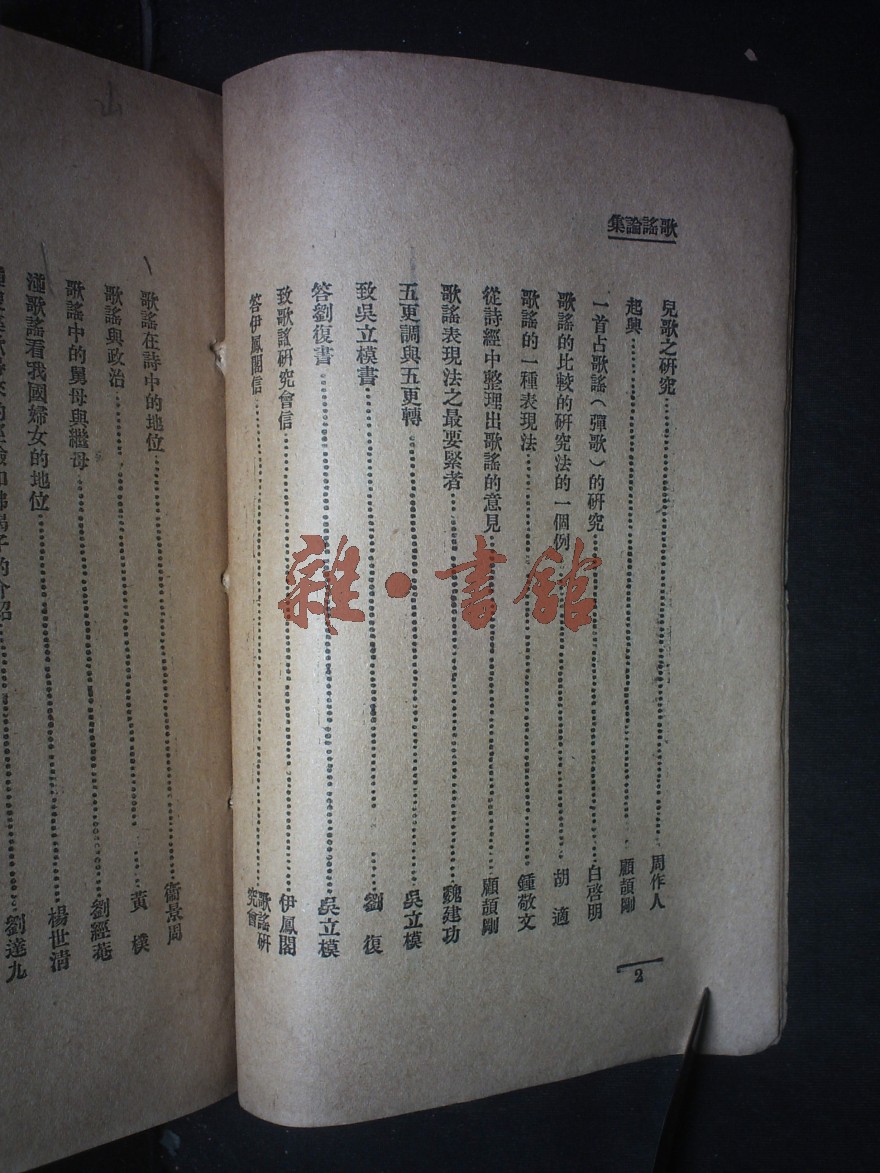 歌謠論集
兒歌之研究 周作人
起興 顧頡剛
一首古歌謠(彈歌)的研究 白啓明
歌謠的比較的研究法的一個例 胡適
歌謠的一種表現法 鍾敬文
從詩經中整理出歌謠的意見 顧頡剛
歌謠表現法之最要緊者 魏建功
五更調與五更轉 吳立模
致吳立模書 劉復
答劉復書 吳立模
致歌謠研究會信 伊鳳閣
答伊鳳閣信 歌謠研究會
2
歌謠在詩中的地位 衞景周
歌謠與政治 黃樸
歌謠中的舅母與繼母 劉經菴
歌謠看我國婦女的地位 楊世清
的介紹 劉達九
雜·書館